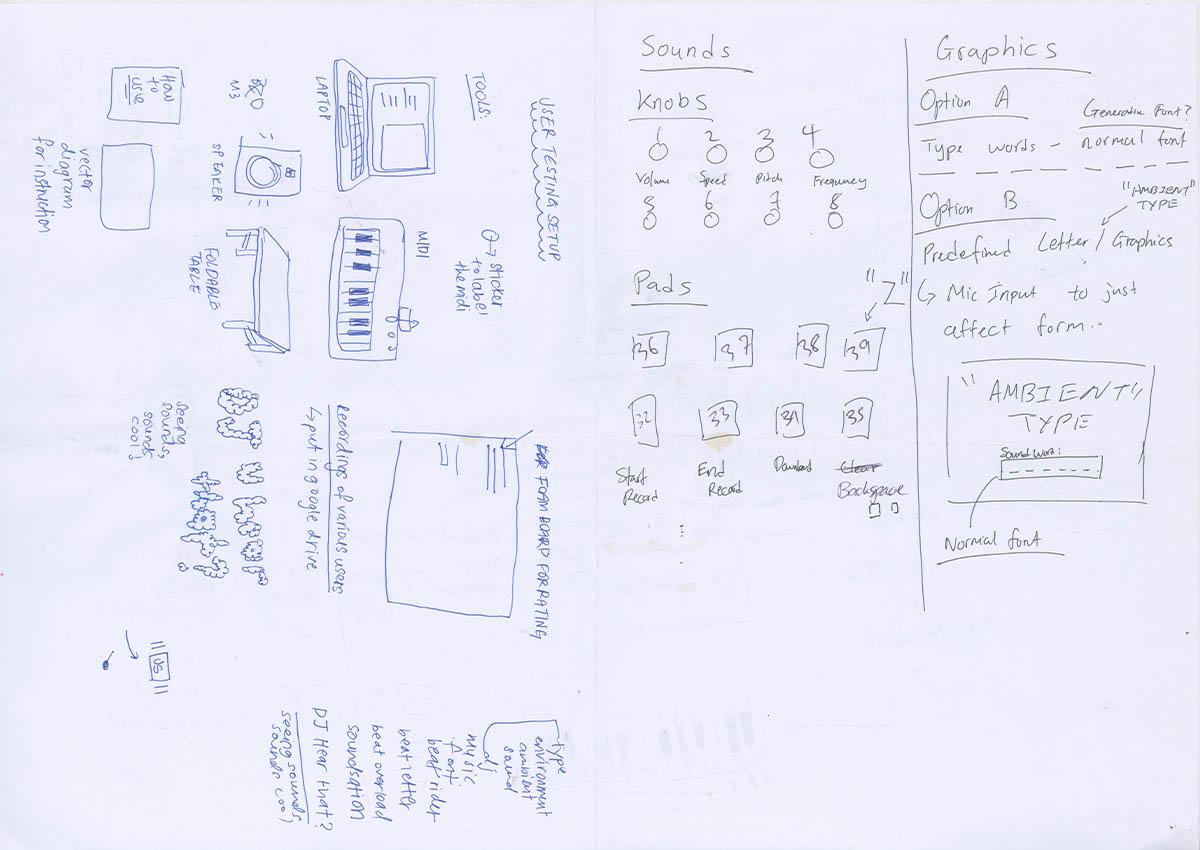 USER TESTING SETUP
TOOLS:
LAPTOP
M3
SPEAKER
How
to
use
vector
diagram
for instruction
MIDI
→ sticker
to label
the midi
FOLDABLE
TABLE
FOAM BOARD FOR RATING
Recordings of various users
↳ put in google drive
seeing
sounds,
sounds
cool!
type
environment
ambient
sound
dj
music
font
beat rider
beat letter
beat overload
soundsation
DJ Hear that?
seeing sounds
sounds cool
Sounds
Knobs
1 2 3 4
Volume Speed Pitch Frequency
5 6 7 8
Pads
"Z"
36 37 38 39
32 33 34 35
Start
Record
End
Record
Download
Clear
Backspace
Graphics
Option A
Generative Font?
Type words - normal font
Option B
"AMBIENT"
TYPE
Predefined Letter / Graphics
↳ Mic Input to just
affect form..
"AMBIENT"
TYPE
Sound word:
Normal font